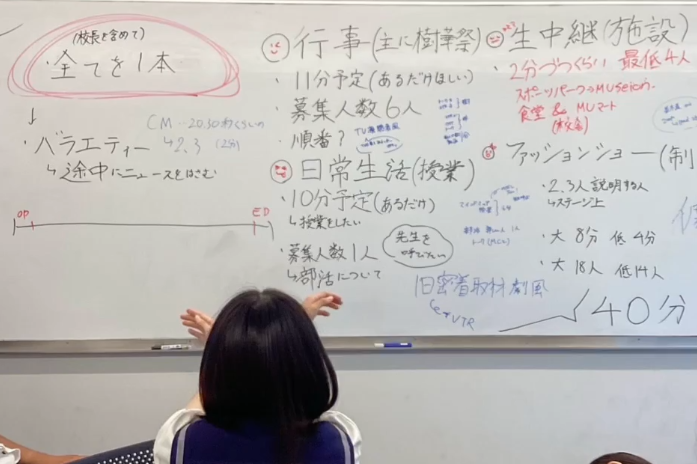 (校長を含めて)
・全てを1本
↓
・バラエティー
↳途中にニュースをはさむ
CM…20,30秒くらいの
↳2,3
OP
ED
行事(主に樹華祭)
・11分予定(あるだけほしい)
・募集人数6人
・順番?
日常生活(授業)
・10分予定(あるだけ)
↳授業をしたい
・募集人数1人
↳部活について
先生を
呼びたい
生中継(施設)
・2分づつくらい 最低4人
スポーツパーク→MUseion.
食堂 & MUマート
(校舎)
ファッションショー(制
・2.3人説明する人
↳ステージ上
・大 8分 低4分
・大 18人 低14人
旧密着取材劇風
VTR
40分